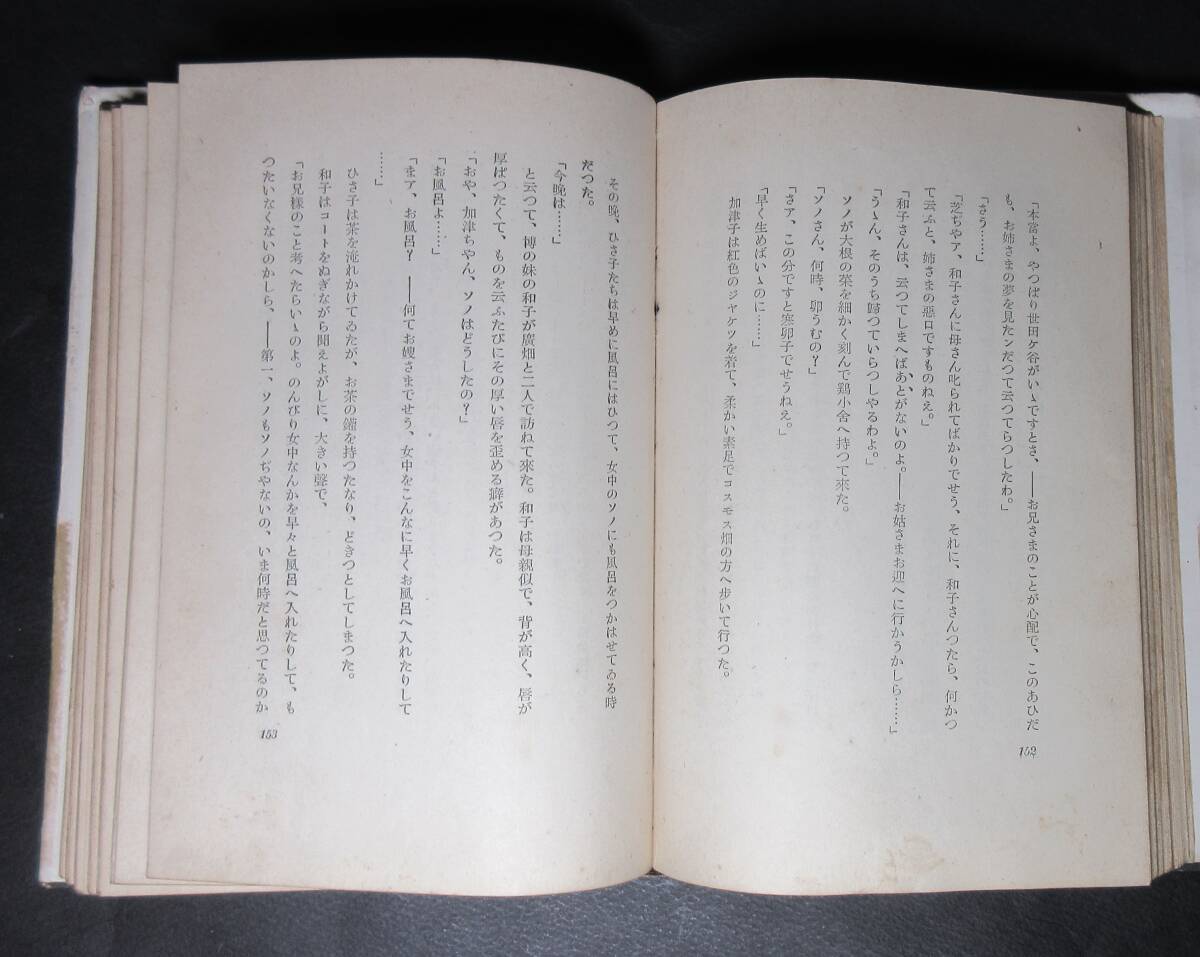 「本當よ、やつぱり世田ケ谷がいゝですとさ、――お兄さまのことが心配で、このあひだ
も、お姉さまの夢を見たンだつて云つてらつしたわ。」
「さう……」
「芝ぢやア、和子さんに母さん叱られてばかりでせう、それに、和子さんつたら、何かつ
て云ふと、姉さまの惡口ですものねえ。」
「和子さんは、云つてしまへばあとがないのよ。――お姑さまお迎へに行かうかしら……」
「うゝん、そのうち歸つていらつしやるわよ。」
ソノが大根の菜を細かく刻んで鶏小舍へ持つて來た。
「ソノさん、何時、卵うむの？」
「さア、この分ですと寒卵子でせうねえ。」
「早く生めばいゝのに……」
加津子は紅色のジヤケツを着て、柔かい素足でコスモス畑の方へ歩いて行つた。
152
その晩、ひさ子たちは早めに風呂にはひつて、女中のソノにも風呂をつかはせてゐる時
だつた。
「今晩は……」
と云つて、博の妹の和子が廣畑と二人で訪ねて來た。和子は母親似で、背が高く、唇が
厚ぼつたくて、ものを云ふたびにその厚い唇を歪める癖があつた。
「おや、加津ちやん、ソノはどうしたの？」
「お風呂よ……」
「まア、お風呂？　――何てお嫂さまでせう、女中をこんなに早くお風呂へ入れたりして
……」
ひさ子は茶を淹れかけてゐたが、お茶の罐を持つたなり、どきつとしてしまつた。
和子はコートをぬぎながら聞えよがしに、大きい聲で、
「お兄様のこと考へたらいゝのよ。のんびり女中なんかを早々と風呂へ入れたりして、も
つたいなくないのかしら、――第一、ソノもソノぢやないの、いま何時だと思つてるのか
153